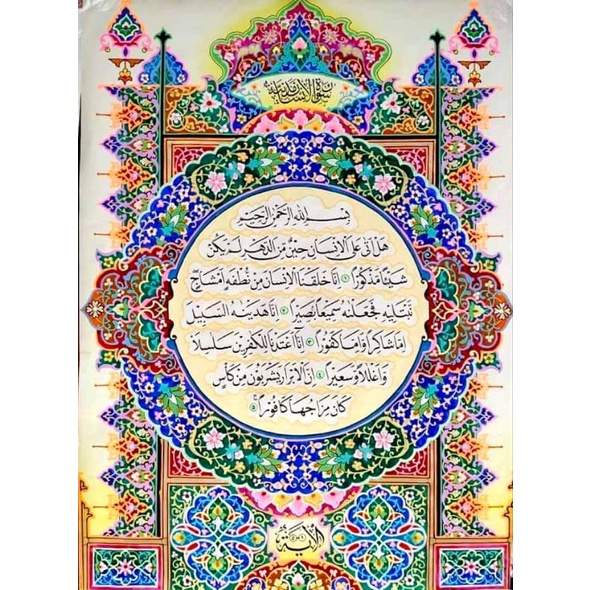 سورة الإنسان مدنية
بسم الله الرحمن الرحيم
هل اتى على الانسان حين من الدهر لم يكن
شيئا مذكورا ١ انا خلقنا الانسان من نطفة امشاج
نبتليه فجعلنه سميعا بصيرا ٢ انا هدينه السبيل
اما شاكرا واما كفورا ٣ انا اعتدنا للكفرين سلسلا
واغللا وسعيرا ٤ ان الابرار يشربون من كأس
كان مزاجها كافورا ٥
الآية